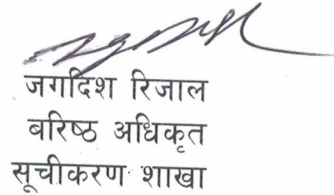 जगदिश रिजाल
बरिष्ठ अधिकृत
सूचीकरण शाखा